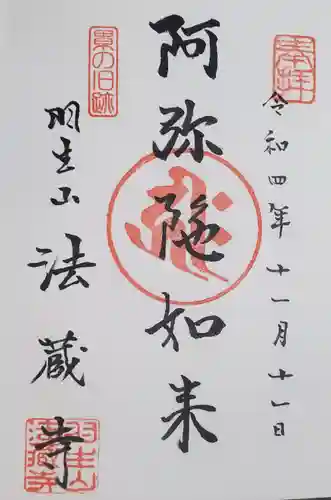 奉拝
令和四年十一月十一日
阿弥陀如来
累の旧跡
羽生山
法蔵寺
羽生山
法蔵寺